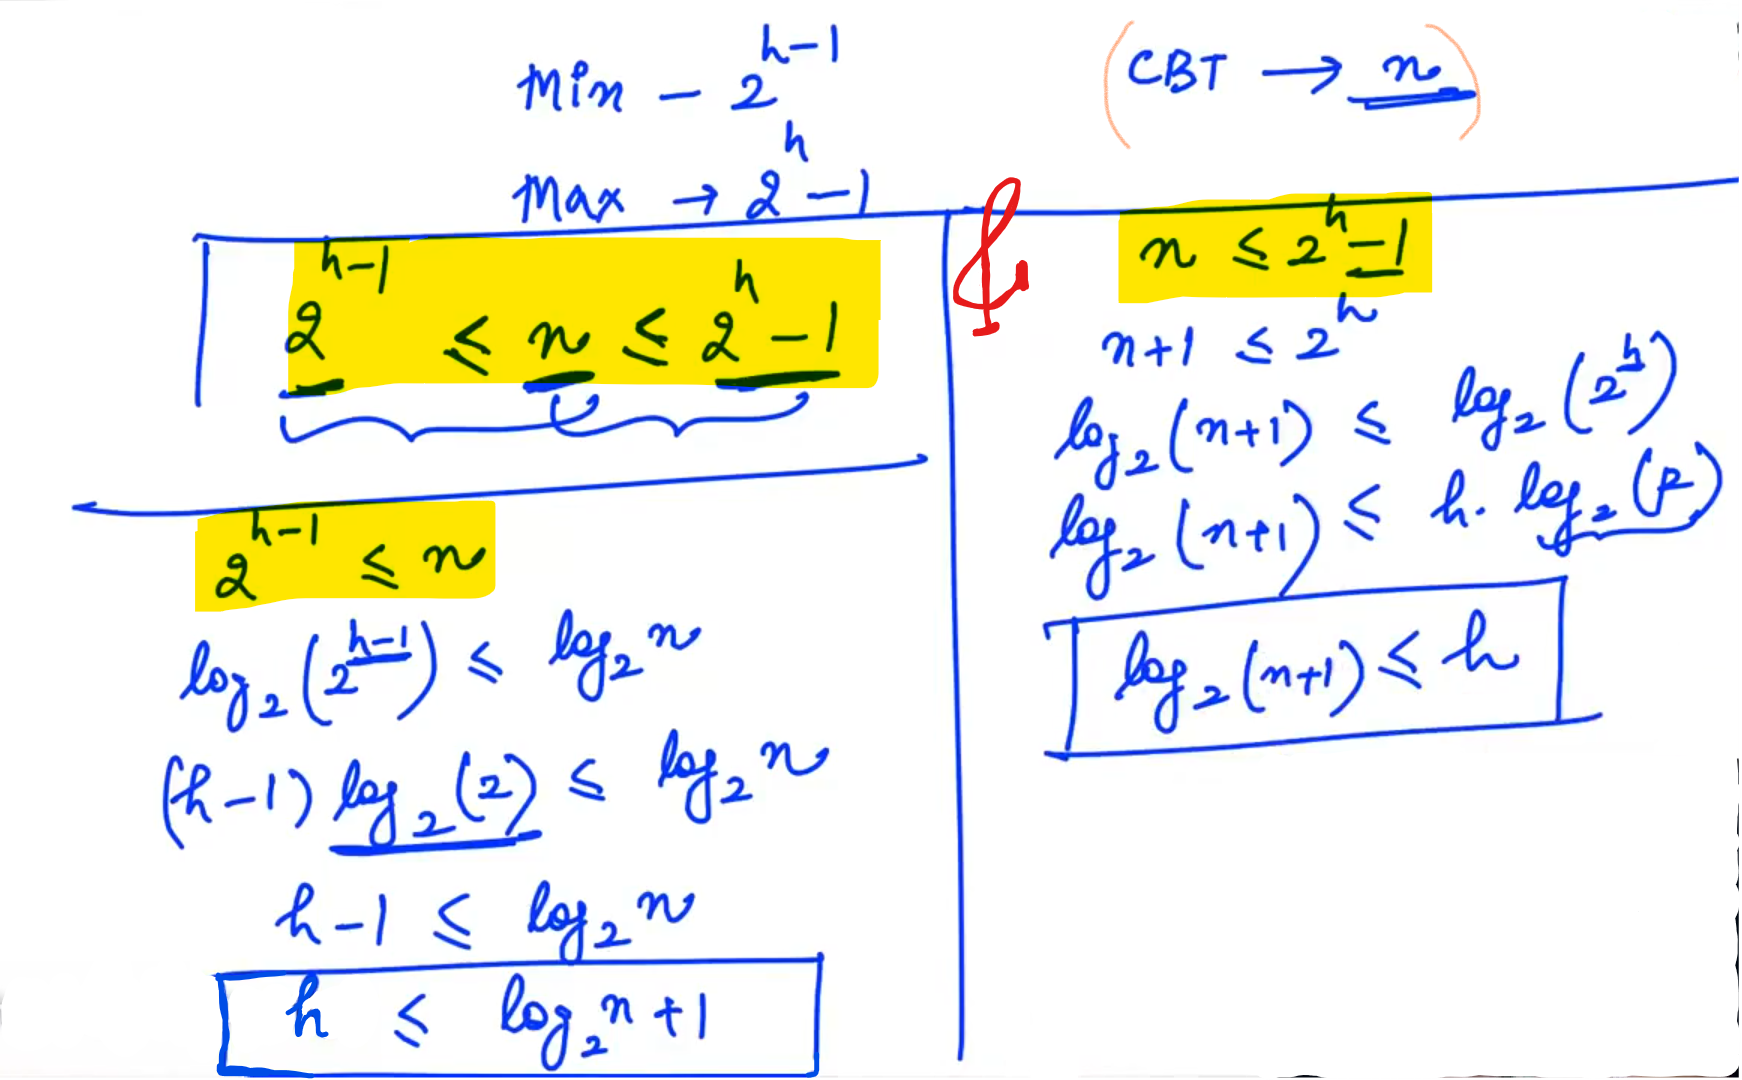 Min - 2^(h-1)
(CBT → n)
Max → 2^h - 1
2^(h-1) ≤ n ≤ 2^h - 1
2^(h-1) ≤ n
log₂(2^(h-1)) ≤ log₂ n
(h-1) log₂(2) ≤ log₂ n
h-1 ≤ log₂ n
h ≤ log₂ n + 1
n ≤ 2^h - 1
n+1 ≤ 2^h
log₂(n+1) ≤ log₂(2^h)
log₂(n+1) ≤ h. log₂(2)
log₂(n+1) ≤ h